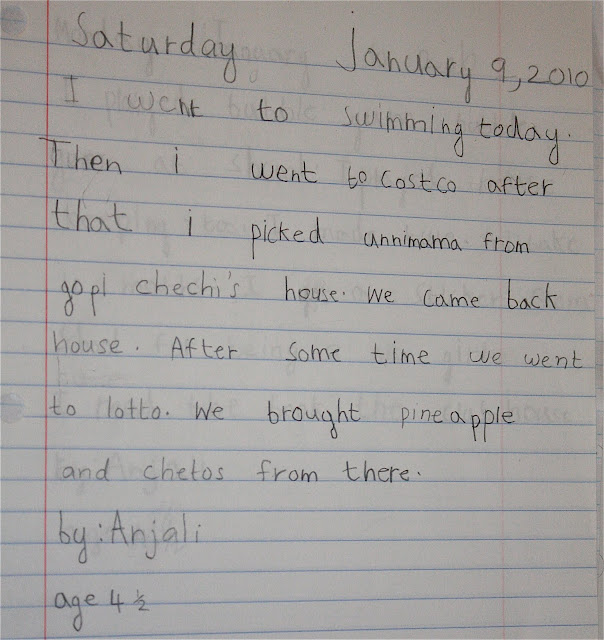 Saturday January 9, 2010
I went to swimming today.
Then i went to costco after
that i picked unnimama from
gopi chechi's house. We came back
house. After some time we went
to lotto. We brought pineapple
and chetos from there.
by: Anjali
age 4 ½